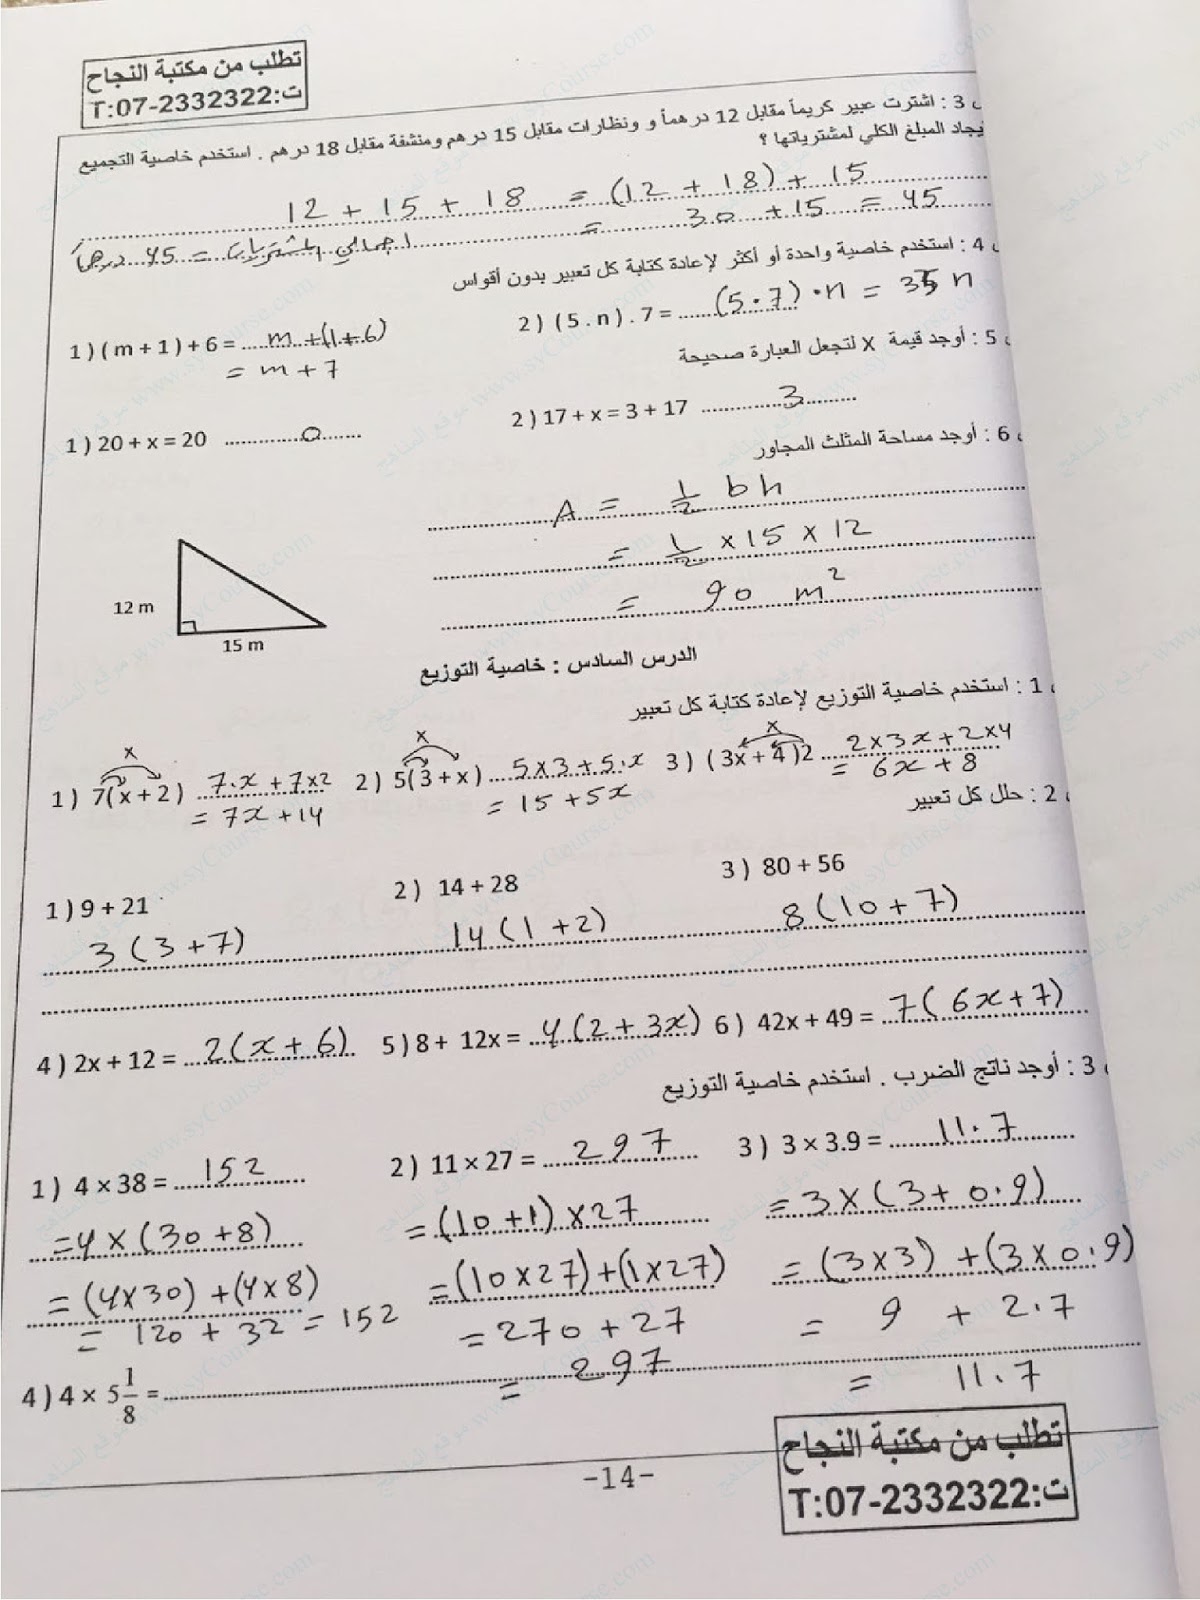 تطلب من مكتبة النجاح
ت:T:07-2332322
3 : اشترت عبير كريماً مقابل 12 درهماً و ونظارات مقابل 15 درهم ومنشفة مقابل 18 درهم . استخدم خاصية التجميع
يجاد المبلغ الكلي لمشترياتها ؟
12 + 15 + 18 = (12 + 18) + 15
= 30 + 15 = 45
اجمالي المشتريات = 45 درهماً
4 : استخدم خاصية واحدة أو أكثر لإعادة كتابة كل تعبير بدون أقواس
1 ) ( m + 1 ) + 6 = m + (1 + 6)
= m + 7
2 ) ( 5 . n ) . 7 = (5 . 7) . n = 35 n
5 : أوجد قيمة X لتجعل العبارة صحيحة
1 ) 20 + x = 20 0
2 ) 17 + x = 3 + 17 3
6 : أوجد مساحة المثلث المجاور
A = 1/2 b h
= 1/2 × 15 × 12
= 90 m²
12 m
15 m
الدرس السادس : خاصية التوزيع
1 : استخدم خاصية التوزيع لإعادة كتابة كل تعبير
x
x
x
1 ) 7(x + 2) 7.x + 7×2
= 7x + 14
2 ) 5(3 + x) 5×3 + 5.x
= 15 + 5x
3 ) (3x + 4)2 2×3x + 2×4
= 6x + 8
2 : حلل كل تعبير
1 ) 9 + 21
3 (3 + 7)
2 ) 14 + 28
14 (1 + 2)
3 ) 80 + 56
8 (10 + 7)
4 ) 2x + 12 = 2(x + 6)
5 ) 8 + 12x = 4 (2 + 3x)
6 ) 42x + 49 = 7( 6x + 7)
3 : أوجد ناتج الضرب . استخدم خاصية التوزيع
1 ) 4 × 38 = 152
= 4 × (30 + 8)
= (4×30) + (4×8)
= 120 + 32 = 152
2 ) 11 × 27 = 297
= (10 + 1) × 27
= (10×27) + (1×27)
= 270 + 27
= 297
3 ) 3 × 3.9 = 11.7
= 3 × (3 + 0.9)
= (3×3) + (3×0.9)
= 9 + 2.7
= 11.7
4 ) 4 × 5 1/8 =
-14-
تطلب من مكتبة النجاح
ت:T:07-2332322
موقع المناهج www.syCourse.com